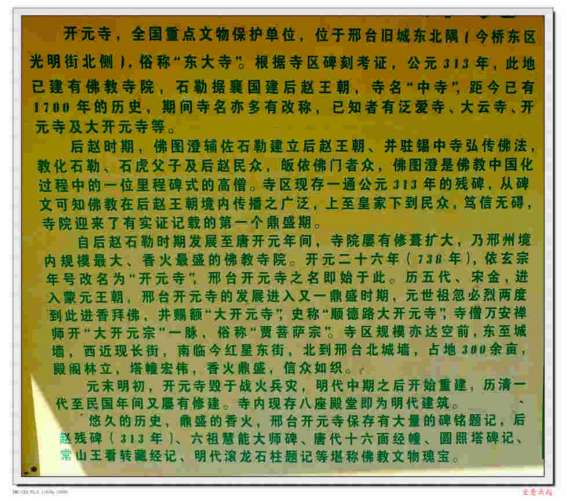 开元寺，全国重点文物保护单位，位于邢台旧城东北隅（今桥东区
光明街北侧），俗称“东大寺”。根据寺区碑刻考证，公元313年，此地
已建有佛教寺院，石勒据襄国建后赵王朝，寺名“中寺”，距今已有
1700年的历史，期间寺名亦多有改称，已知者有泛爱寺、大云寺、开
元寺及大开元寺等。
后赵时期，佛图澄辅佐石勒建立后赵王朝、并驻锡中寺弘传佛法，
教化石勒、石虎父子及后赵民众，皈依佛门者众，佛图澄是佛教中国化
过程中的一位里程碑式的高僧。寺区现存一通公元313年的残碑，从碑
文可知佛教在后赵王朝境内传播之广泛，上至皇家下到民众，笃信无碍，
寺院迎来了有实证记载的第一个鼎盛期。
自后赵石勒时期发展至唐开元年间，寺院屡有修葺扩大，乃邢州境
内规模最大、香火最盛的佛教寺院。开元二十六年（738年），依玄宗
年号改名为“开元寺”，邢台开元寺之名即始于此。历五代、宋金，进
入蒙元王朝，邢台开元寺的发展进入又一鼎盛时期，元世祖忽必烈两度
到此进香拜佛，并赐额“大开元寺”；史称“顺德路大开元寺”；寺僧万安禅
师开“大开元宗”一脉，俗称“贾菩萨宗”。寺区规模亦达空前，东至城
墙，西近现长街，南临今红星东街，北到邢台北城墙，占地300余亩，
殿阁林立，塔幢宏伟，香火鼎盛，信众如织。
元末明初，开元寺毁于战火兵灾，明代中期之后开始重建，历清一
代至民国年间又屡有修建。寺内现存八座殿堂即为明代建筑。
悠久的历史，鼎盛的香火，邢台开元寺保存有大量的碑铭题记，后
赵残碑（313年）、六祖慧能大师碑、唐代十六面经幢、圆照塔碑记、
常山王看转藏经记、明代滚龙石柱题记等堪称佛教文物瑰宝。